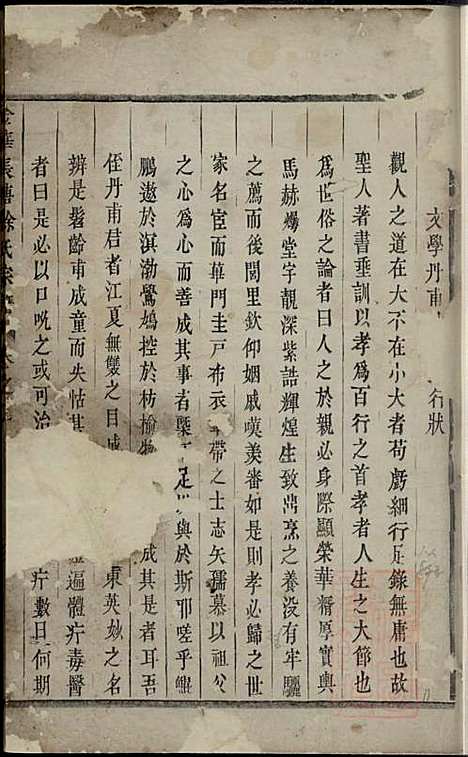 文學丹甫 行狀
觀人之道在大不在小大者苟虧細行足錄無庸也故
聖人著書垂訓以孝為百行之首孝者人生之大節也
為世俗之論者曰人之於親必身際顯榮華精厚實輿
馬赫爍堂宇靚深紫誥輝煌生致鼎烹之養没有牢驪
之薦而後閭里欽仰姻戚嘆羡審如是則孝必歸之世
家名宦而蓽門圭戸布衣 帶之士志矢孺慕以祖父
之心為心而善成其事者槩 足 與於斯耶嗟乎鯤
鵬遨於溟渤鷽鳩控於枋榆物 成其是者耳吾
侄丹甫君者江夏無雙之目成 東英妙之名
辨是髫齡甫成童而失怙其 遍體疔毒醫
者曰是必以口吮之或可治 疔數日何期
金華長塘徐氏宗